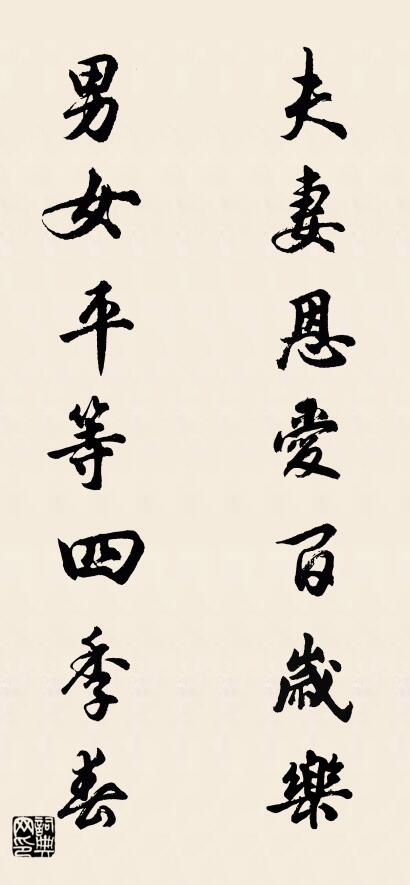 夫妻恩愛百歲樂
男女平等四季春
詞典网印